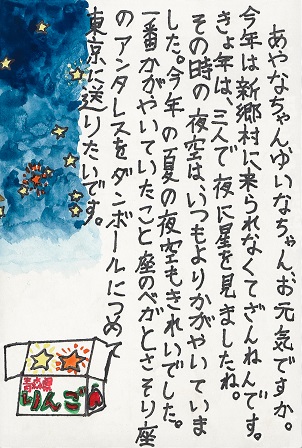 あやなちゃんゆいなちゃん、お元気ですか。
今年は新郷村に来られなくてざんねんです。
きょ年は、三人で夜に星を見ましたね。
その時の夜空は、いつもよりかがやいていま
した。今年の夏の夜空もきれいでした。
一番かがやいていたこと座のベガとさそり座
のアンタレスをダンボールにつめて
東京に送りたいです。
青森県
りんご